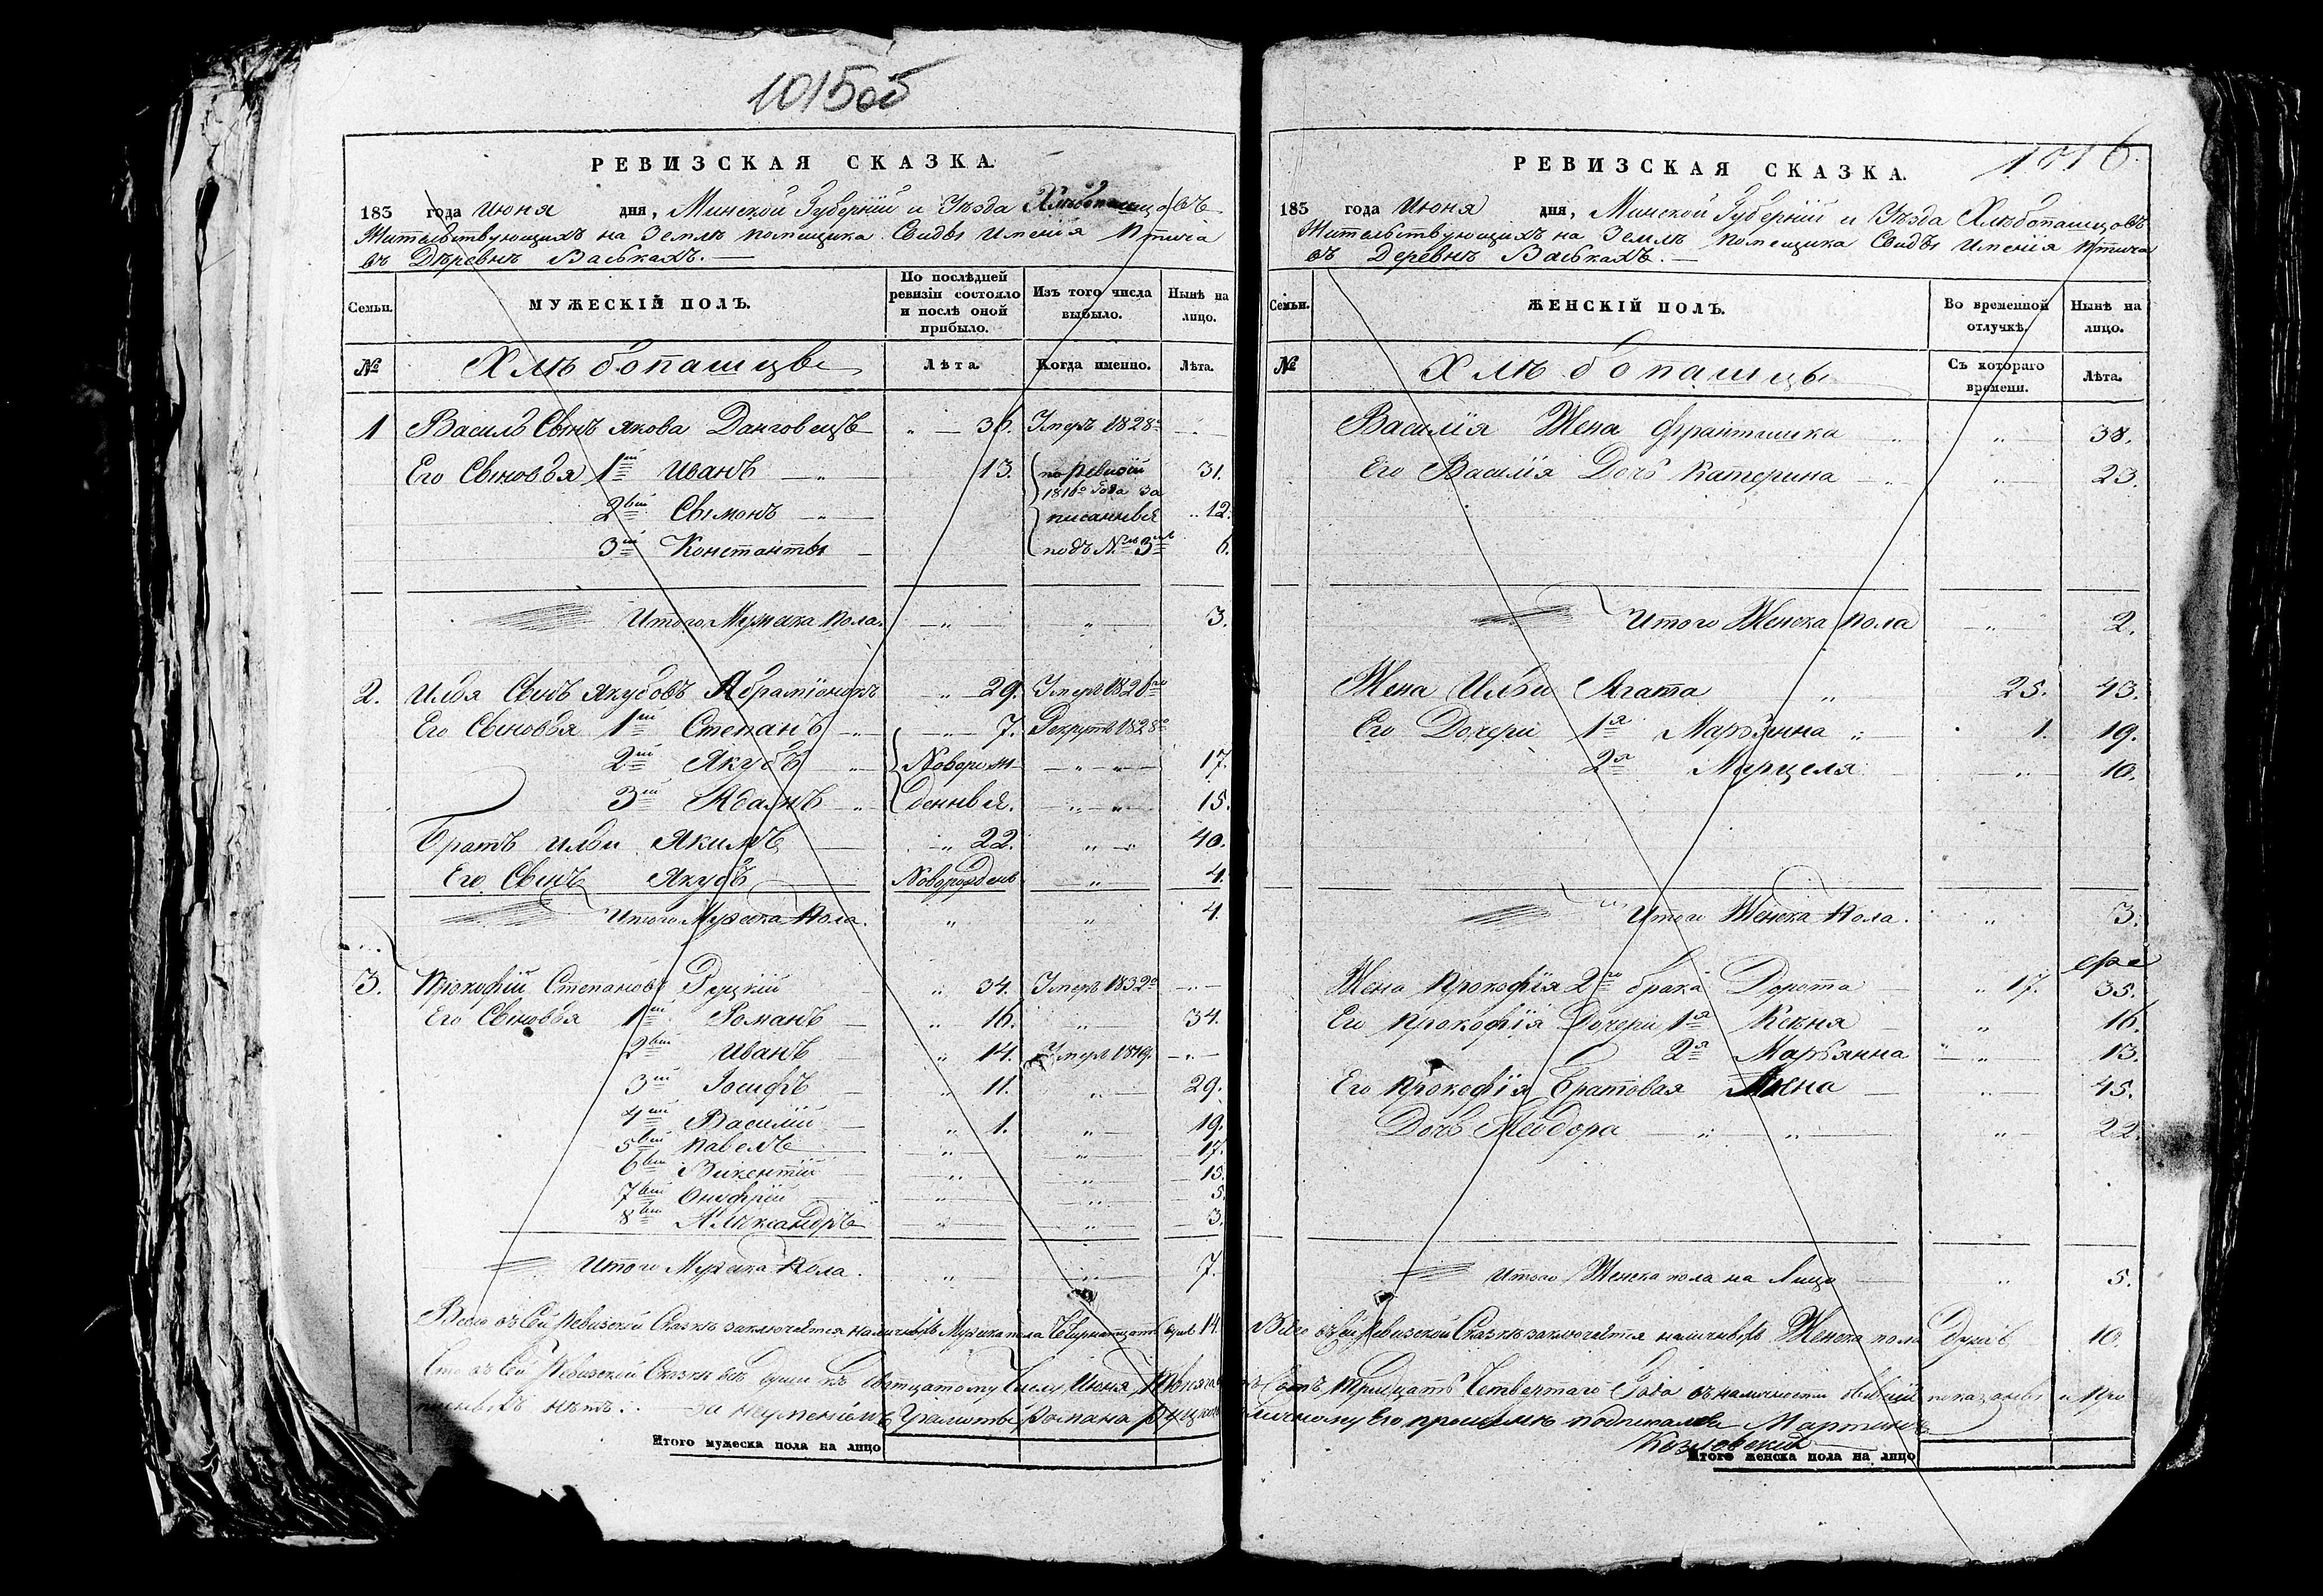 1015об
РЕВИЗСКАЯ СКАЗКА.
183 года Июня дня, Минской Губерніи и Уѣзда Хлѣбопашцовъ
Жительствующихъ на Землѣ помещика Свиды Именія Птича
въ Деревнѣ Васькахъ.
Семьи.
МУЖЕСКІЙ ПОЛЪ.
По послѣдней ревизіи состояло и послѣ оной прибыло.
Изъ того числа выбыло.
Нынѣ на лицо.
№
Хлѣбопашцы
Лѣта.
Когда именно.
Лѣта.
1 Василь Сынъ Якова Данговецъ 36. Умеръ 1828го
Его Сыновья 1й Иванъ 13. по ревизіи 31.
1816го Года за
2ый Сымонъ писанныя 12.
3й Константы подъ №м 3мъ 6.
Итого Мужеска Пола. 3.
2. Илья Сынъ Якубовъ Абраміонокъ 29. Умеръ 1826го
Его Сыновья 1й Степанъ 7. Рекрутъ 1828го
2й Якубъ Поворож 17.
3й Адамъ денныя. 15.
Братъ Ильи Якимъ 22. 40.
Его Сынъ Якубъ Новорожденъ 4.
Итого Мужеска Пола. 4.
3. Прокофій Степановъ Руцкій 34. Умеръ 1832го
Его Сыновья 1й Романъ 16. 34.
2ый Иванъ 14. Умеръ 1819.
3й Іосифъ 11. 29.
4й Василій 1. 19.
5ый Павелъ 17.
6ый Викентій 13.
7ый Онуфрій 5.
8ый Александръ 3.
Итого Мужеска Пола. 7.
Всего въ Сей Ревизской Сказкѣ заключается наличныхъ Мужеска пола Четырнатцать Душъ 14.
Что въ Сей Ревизской Сказкѣ всѣ души къ Июня
нѣтъ. За неуменіемъ Грамоты Романа Руцкого
Итого мужеска пола на лицо
1016.
РЕВИЗСКАЯ СКАЗКА.
183 года Июня дня, Минской Губерніи и Уѣзда Хлѣбопашцовъ
Жительствующихъ на Землѣ Помещика Свиды Именія Птича
въ Деревнѣ Васькахъ.
Семьи.
ЖЕНСКІЙ ПОЛЪ.
Во временной отлучкѣ.
Нынѣ на лицо.
№
Хлѣбопашцы
Съ котораго времени.
Лѣта.
Василія Жена Франтишка 38.
Его Василія Дочь Катерина 23.
Итого Женска Пола 2.
Жена Ильи Агата 25. 43.
Его Дочери 1я Марьянна 1. 19.
2я Марцеля 10.
Итого Женска Пола. 3.
Жена Прокофія 2го брака Дорота 17. 35.
Его Прокофія Дочери 1я Ксеня 16.
2я Марьянна 13.
Его Прокофія Братовая Анна 45.
Дочь Теодора 22.
Итого Женска пола на Лицо 5.
Всего въ Сей Ревизской Сказкѣ заключается наличныхъ Женска пола Душъ 10.
Сотъ Тридцать Четвертаго Года въ наличности показаны и про
личному Его прошенію подписался Мартинъ
Козловскій
Итого женска пола на лицо